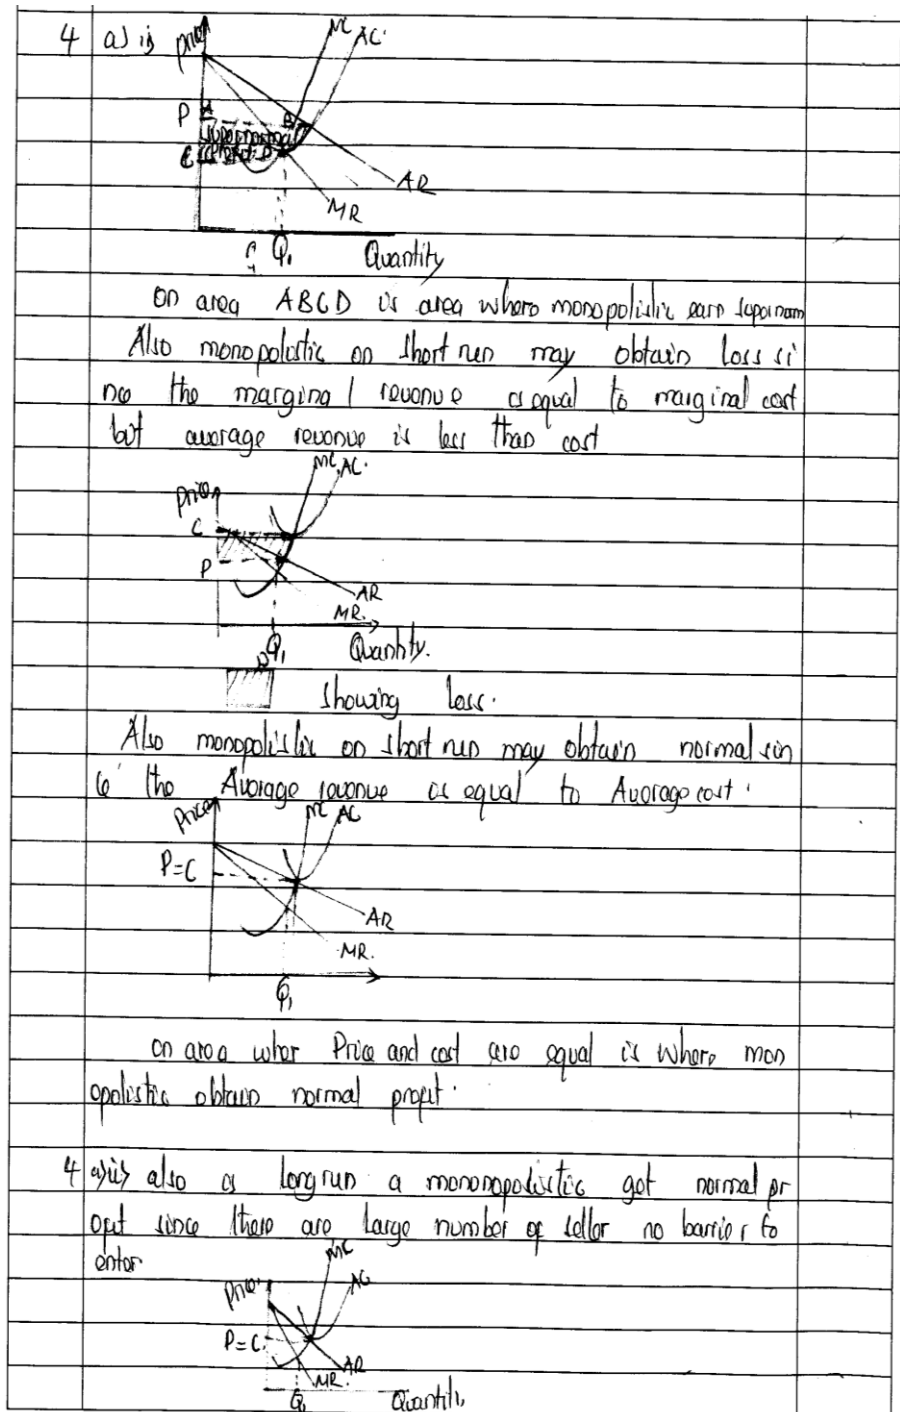 4 a) i) Price
MC AC
P A B
Supernormal
C profit D
AR
MR
Q1 Quantity
on area ABCD is area where monopolistic earn supernom
Also monopolistic on short run may obtain loss si
nce the marginal revenue is equal to marginal cost
but average revenue is less than cost
MC AC.
Price
C
P
AR
MR.
Q1 Quantity.
showing loss.
Also monopolistic on short run may obtain normal sin
ce the Average revenue is equal to Average cost.
Price MC AC
P=C
AR
MR.
Q1
on area wher Price and cost are equal is where mon
opolistic obtain normal profit.
4 a) ii) also as long run a mononopolistic get normal pr
ofit since there are large number of seller no barrier to
enter
MC
Price AC
P=C
AR
MR.
Q1 Quantity